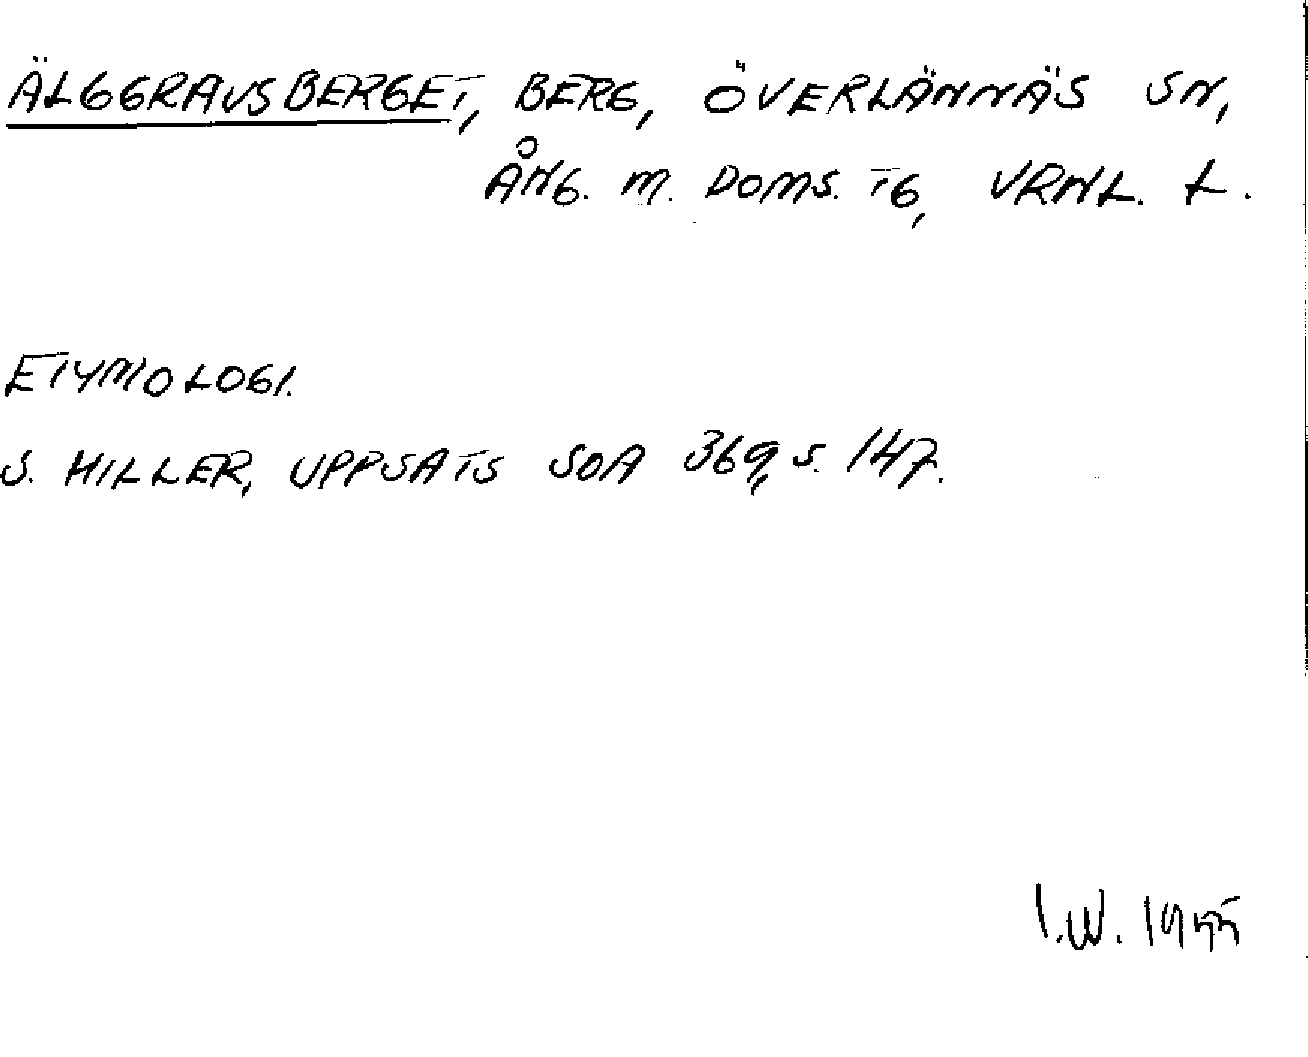 ÄLGGRAVSBERGET, BERG, ÖVERLÄNNÄS SN,
ÅNG. M. DOMS. TG, VRNL. L.
ETYMOLOGI.
S. HILLER, UPPSATS SOA 369, S. 147.
I.W. 1955